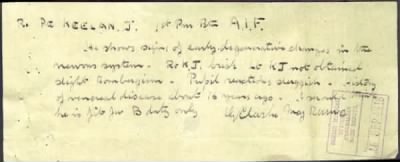 Re Pte KEELAN, J. 1st Pnr Btn A.I.F.
He shows signs of early degenerative changes in the
nervous system - Rt K.J. brisk Lt KJ not obtained
slight Rombergism - Pupil reaction sluggish - History
of venereal disease about 16 years ago - I consider
he is fit for B duty only Clarke Maj